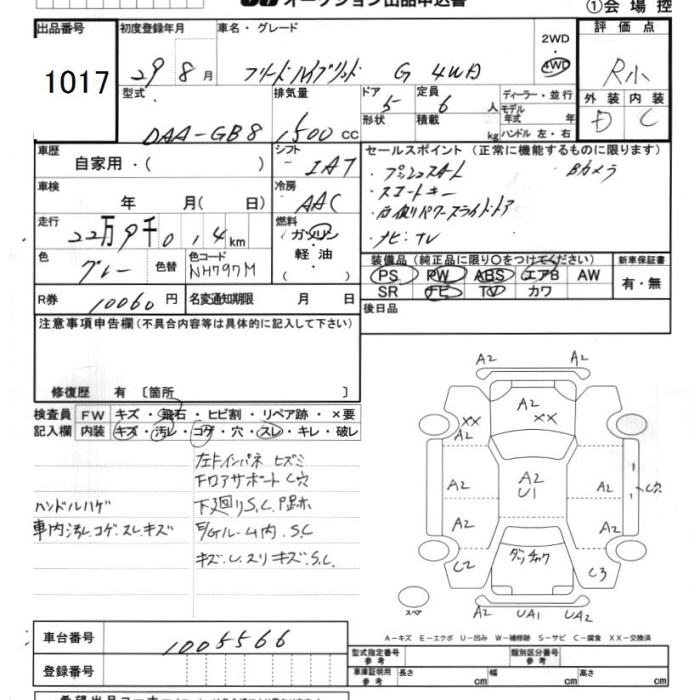 オークション出品申込書
①会場控
出品番号
1017
初度登録年月
29 8月
車名・グレード
フリードハイブリッド G 4WD
2WD
・
4WD
評価点
R小
型式
DAA-GB8
排気量
1500 cc
ドア
5
形状
定員
6 人
積載
kg
ディーラー・並行
モデル
年式 年
ハンドル 左・右
外装 内装
D C
車歴
自家用・( )
シフト
IAT
セールスポイント (正常に機能するものに限り)
・プッシュスタート Bカメラ
・スマートキー
・両側パワースライドドア
・ナビ・TV
車検
年 月( 日)
冷房
AAC
走行
22万9千0 1 4 km
燃料
ガソリン
軽油
( )
色
グレー
色替
色コード
NH797M
装備品 (純正品に限り〇をつけてください)
PS PW ABS エアB AW
SR ナビ TV カワ
新車保証書
有・無
R券
10060円
名変通知期限 月 日
後日品
注意事項申告欄 (不具合内容等は具体的に記入して下さい)
修復歴 有 〔箇所 〕
検査員
記入欄
FW キズ・飛石・ヒビ割・リペア跡・×要
内装 キズ・汚レ・コゲ・穴・スレ・キレ・破レ
左Fインパネ ヒズミ
Fロアサポート C穴
ハンドルハゲ
下廻りS.C
車内汚レ.コゲ.スレ.キズ
S.C
キズ.U.スリキズ.S.C.
A2 A2
A2
XX
XX
A2
A2
A2
U1
A2
C穴
A2
A2
C2
C3
スペア
A2 UA1 UA2
A-キズ E-エクボ U-凹み W-補修跡 S-サビ C-腐食 XX-交換済
車台番号
1005566
登録番号
型式指定番号
参考
類別区分番号
参考
車庫証明用
参考
長さ cm 幅 cm 高さ cm